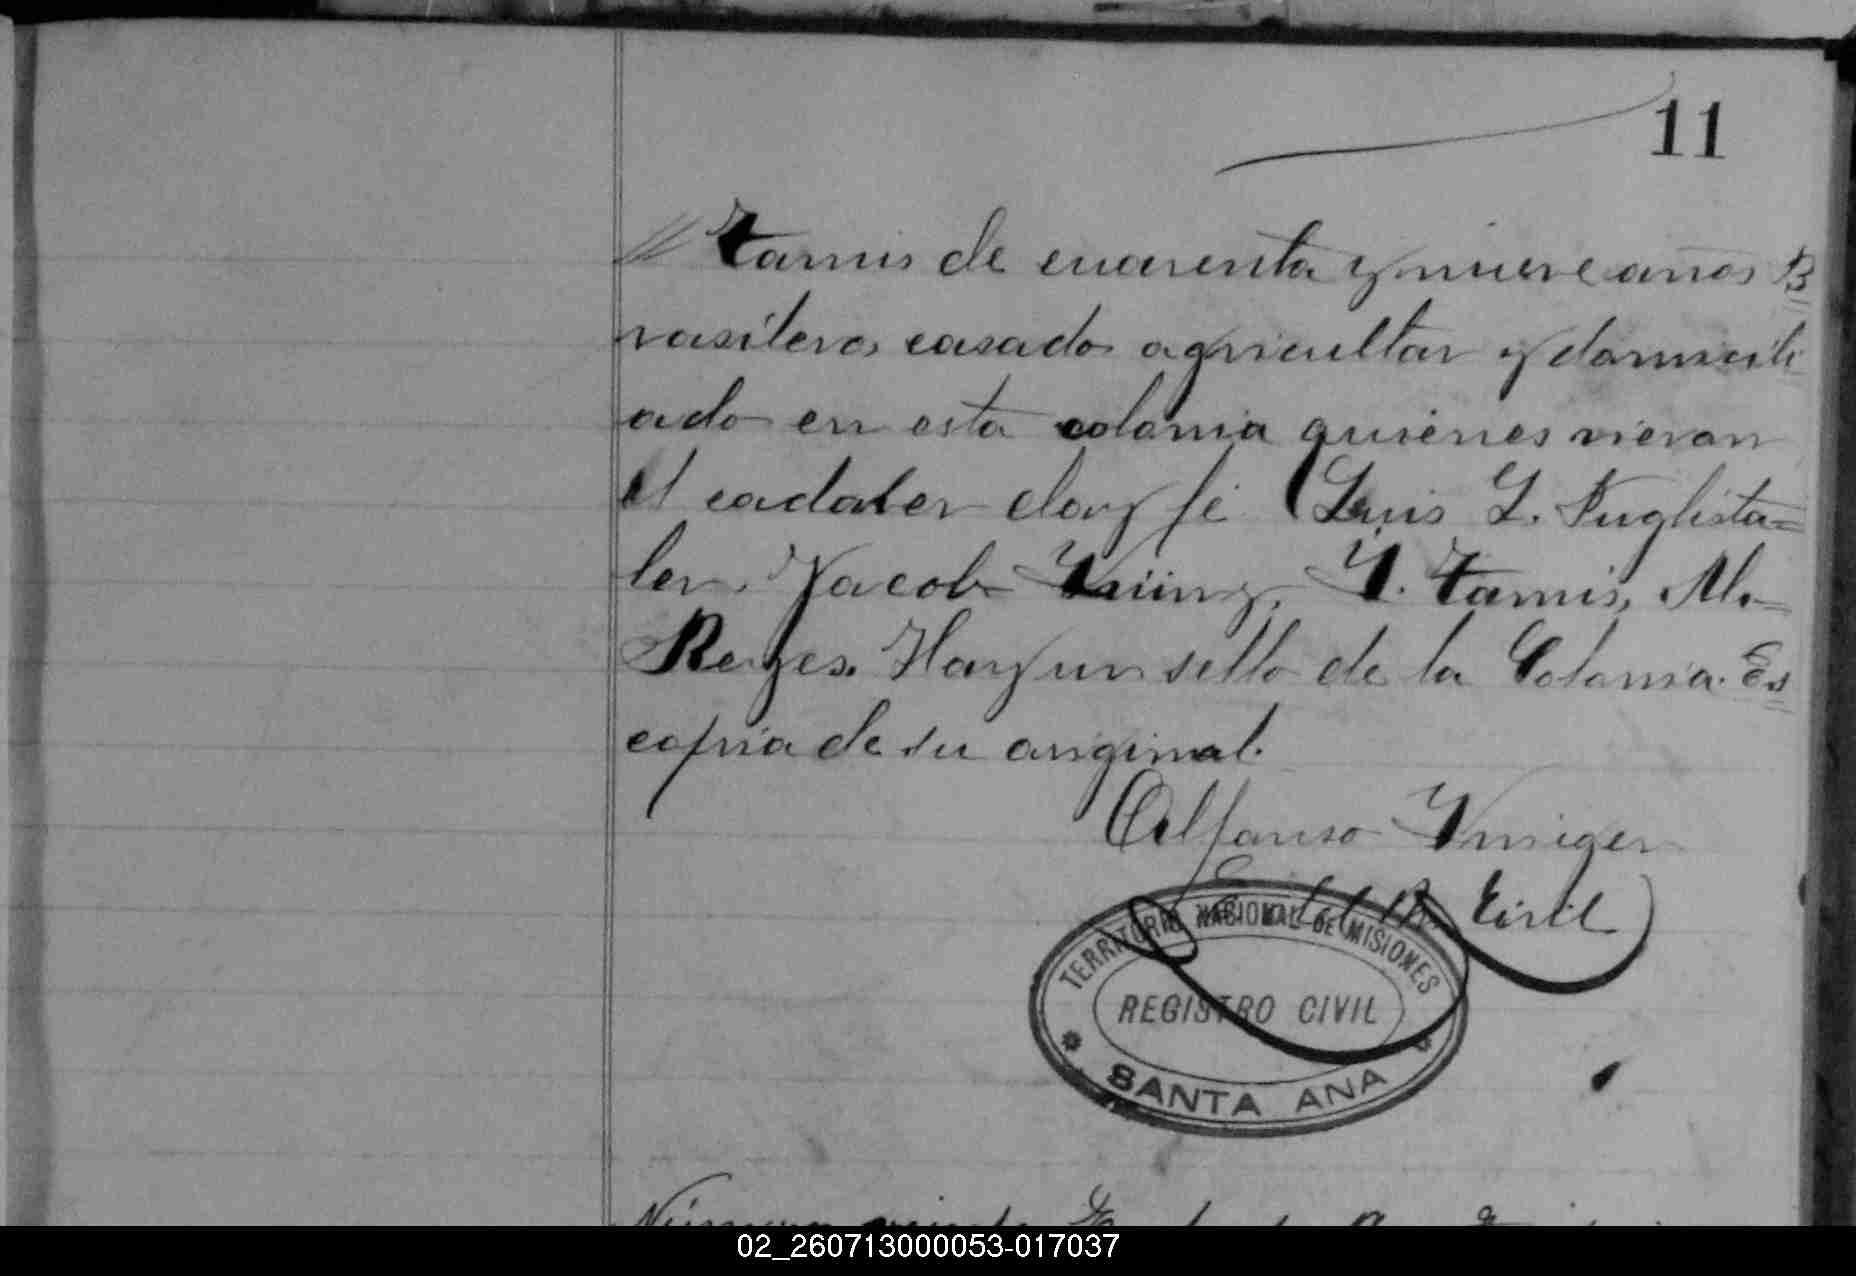 11
Tamis de cuarenta y nueve años B
rasilero, casado agricultor y domicili
ado en esta colonia quienes vieron
el cadaber doy fé Luis L. Puglista=
ler, Jacob Küinz, Y. Tamis, M.
Reyes. Hay un sello de la Colonia. Es
copia de su original.
Alfonso
Civil
TERRITORIO NACIONAL DE MISIONES
REGISTRO CIVIL
SANTA ANA
Número
02_260713000053-017037